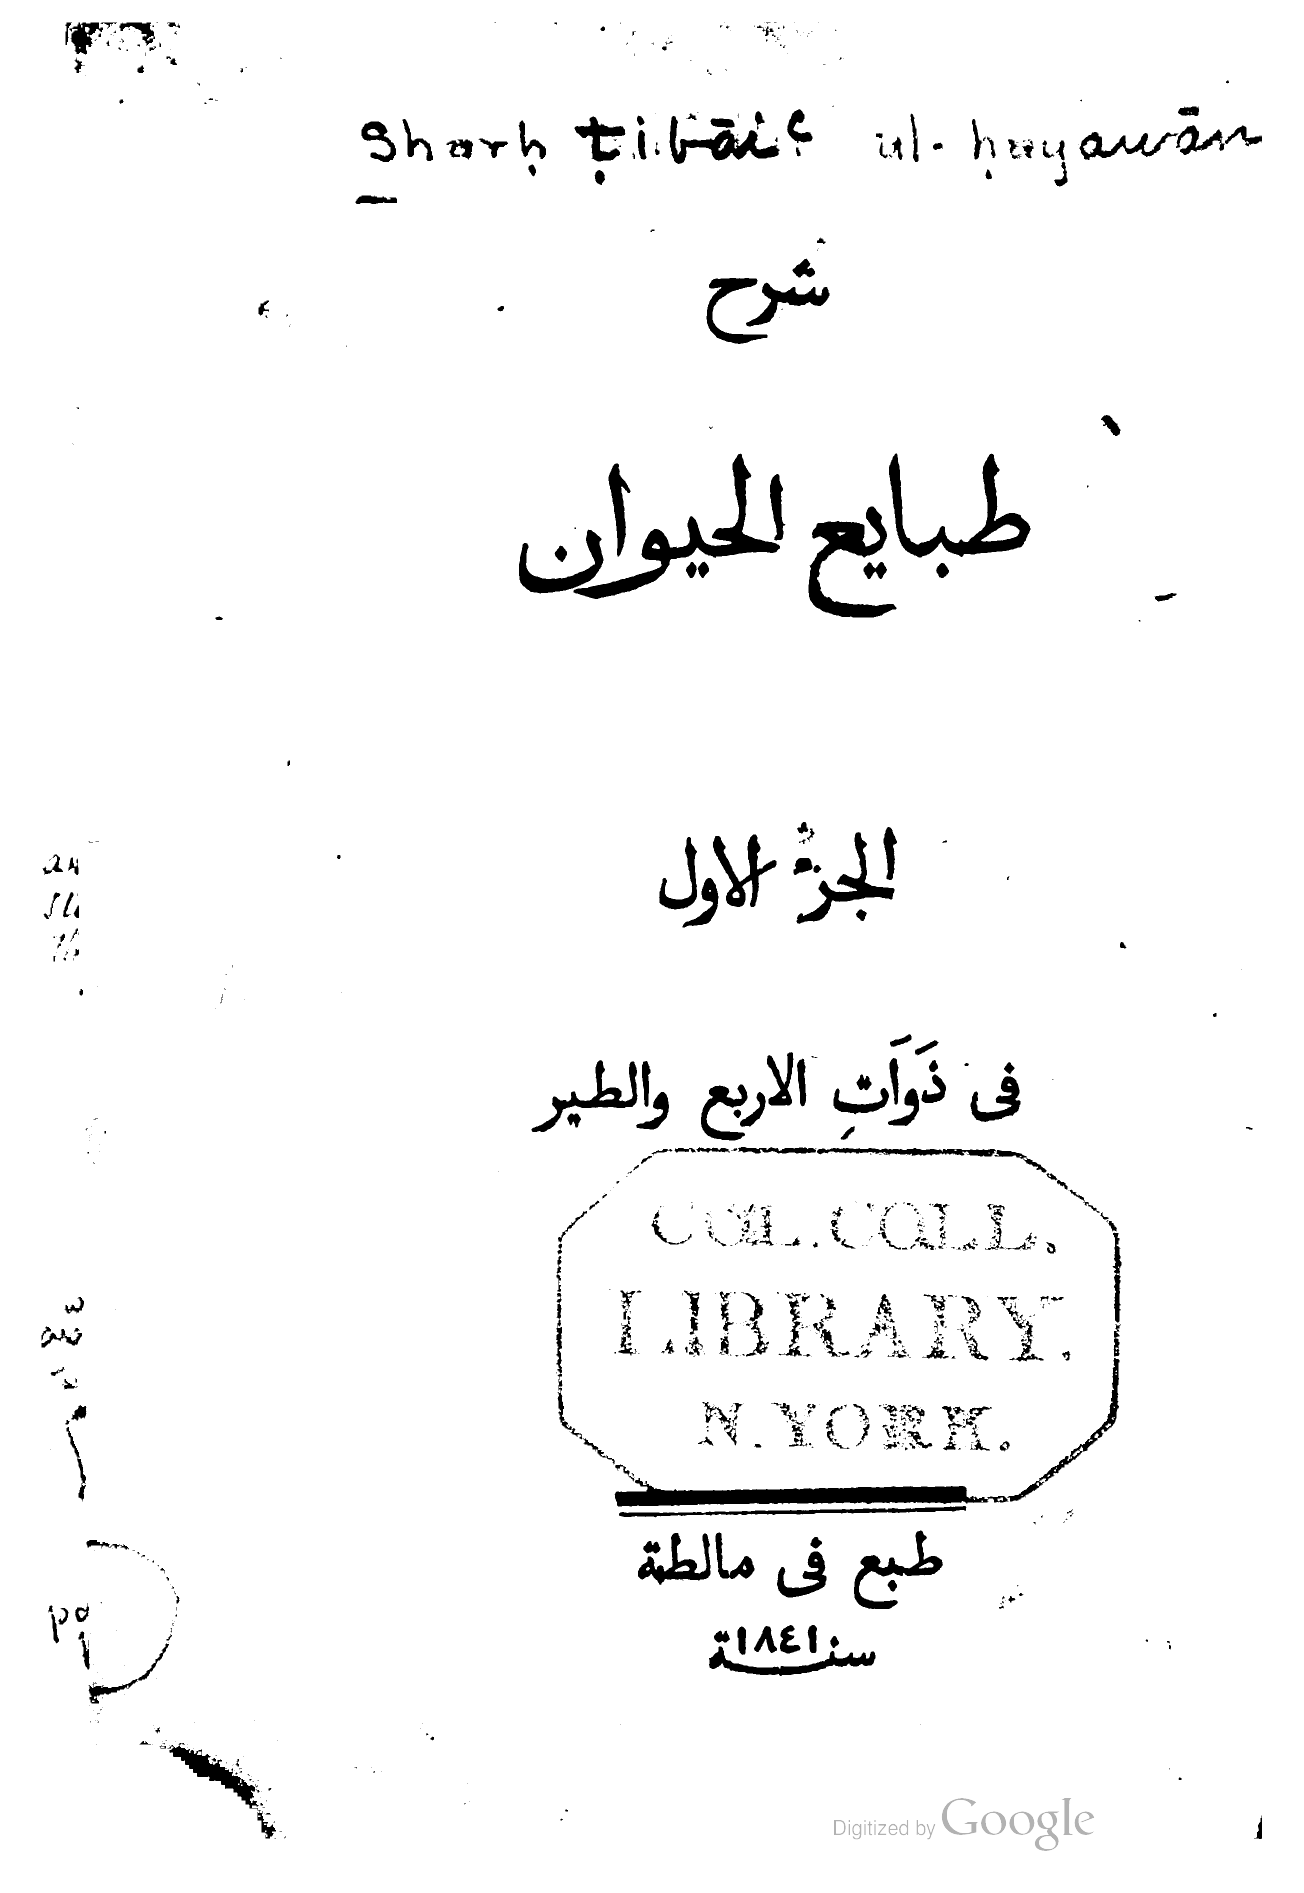 Sharḥ ṭibāiʿ ul-ḥayawān
شرح
طبايع الحيوان
الجزء الاول
فى ذَوَاتِ الاربع والطير
COL. COLL.
LIBRARY.
N. YORK.
طبع فى مالطة
سنة ١٨٤١
Digitized by Google